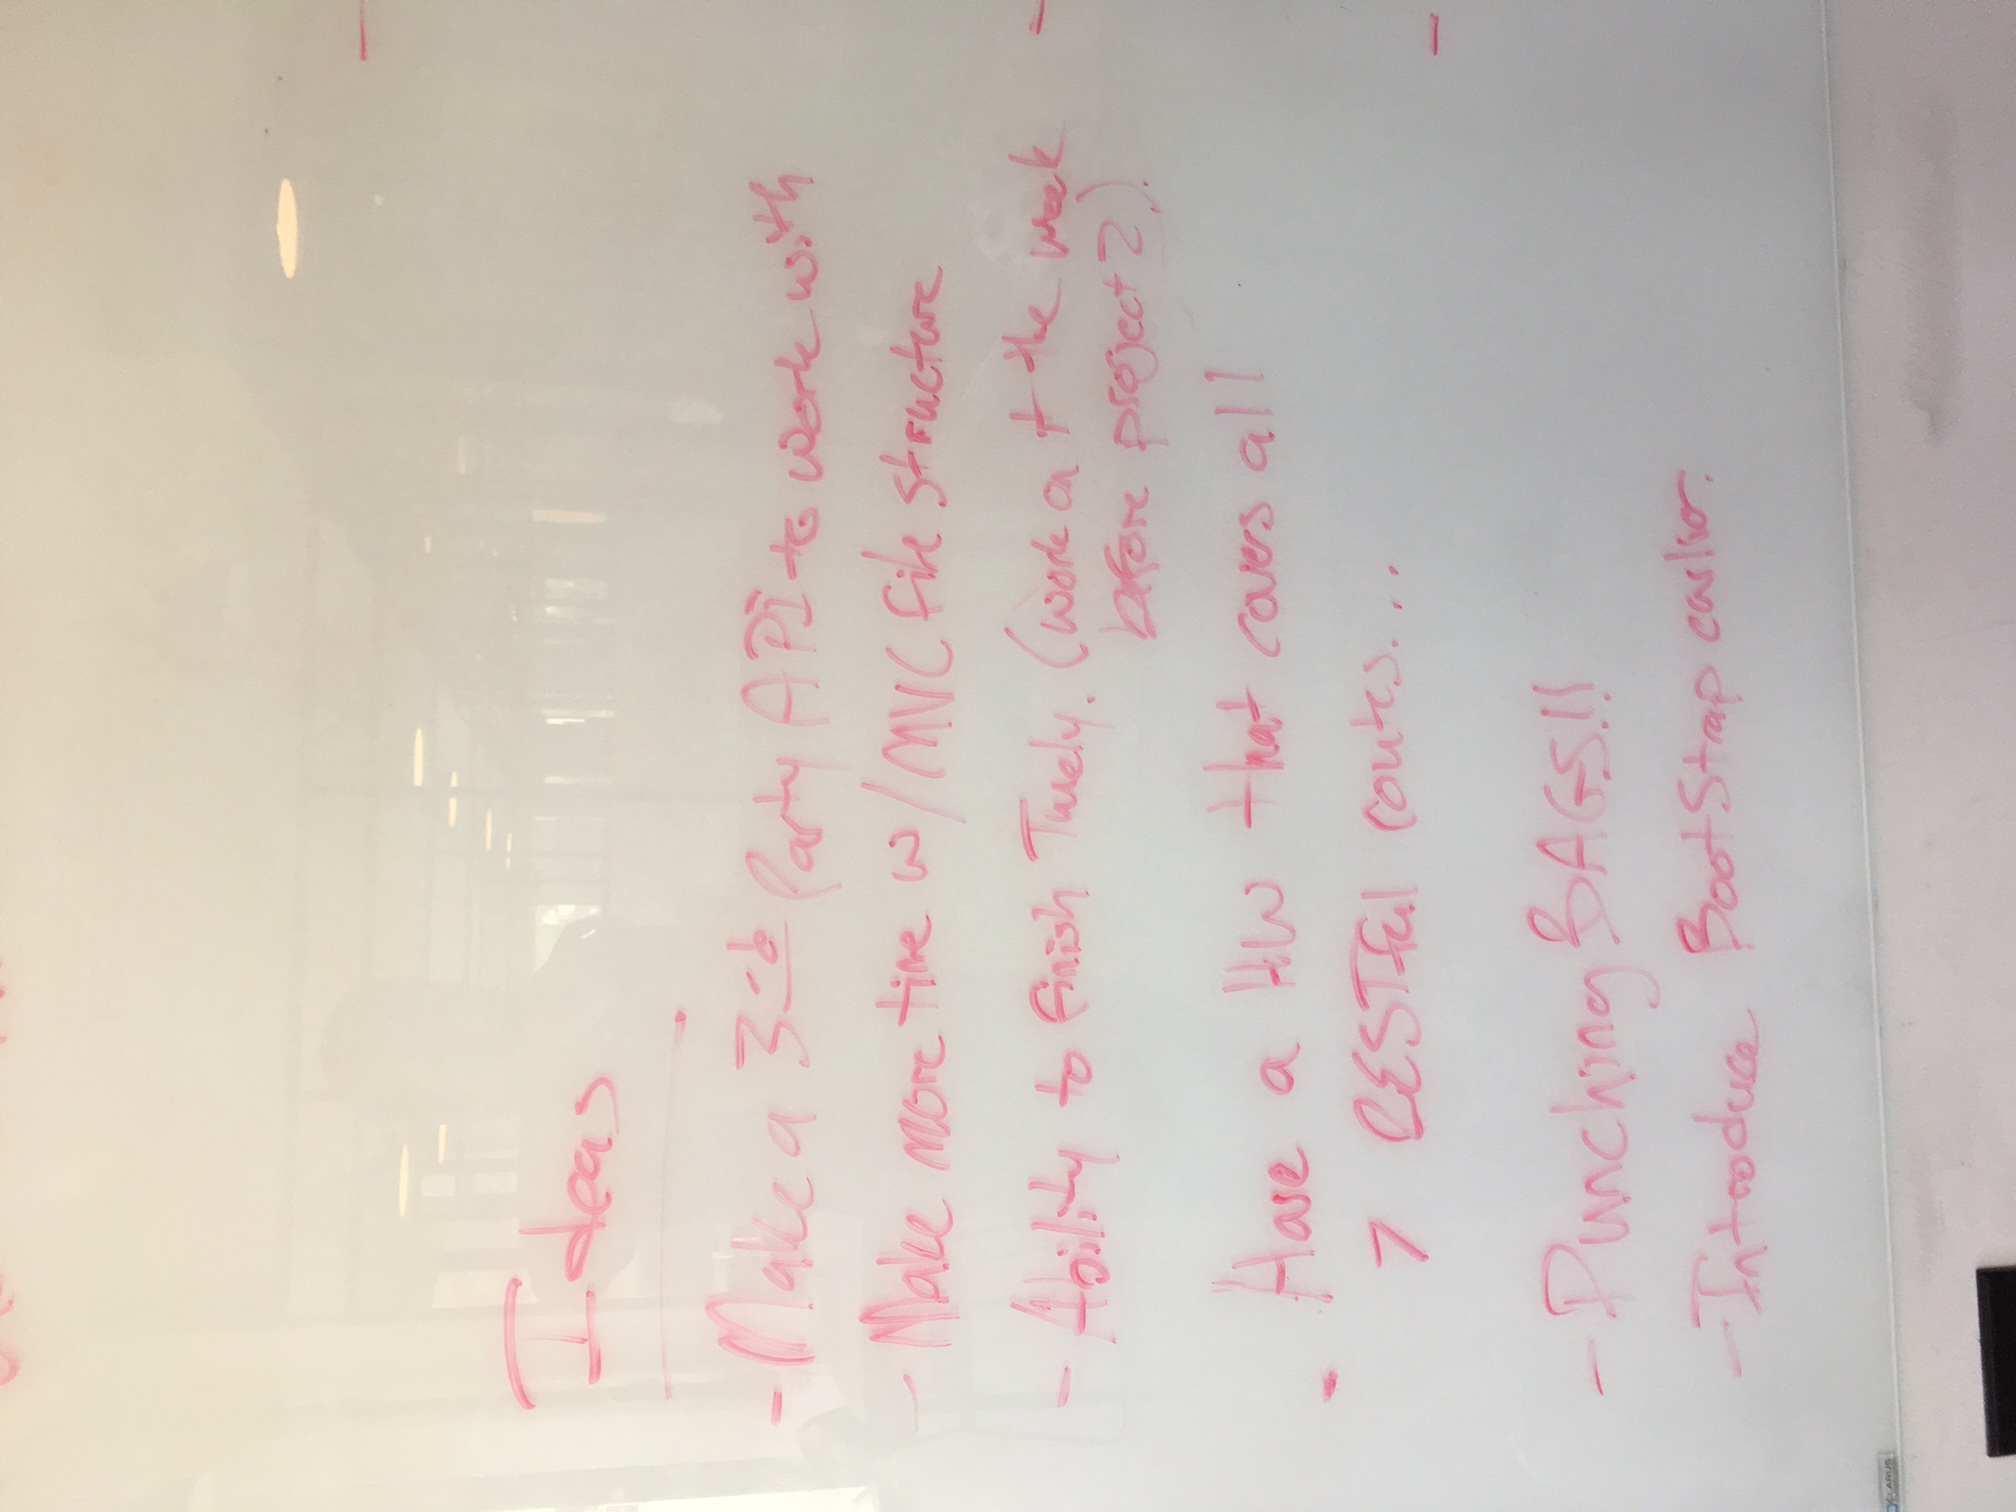 Ideas
- Make a 3rd Party API to work with
- Make more time w/ MVC file structure
- Ability to finish Twely. (work on t the week
before project 2).
- Have a HW that covers all
7 RESTful routes...
- Punching BAGS!!
- Introduce BootStrap earlier.
CLARUS